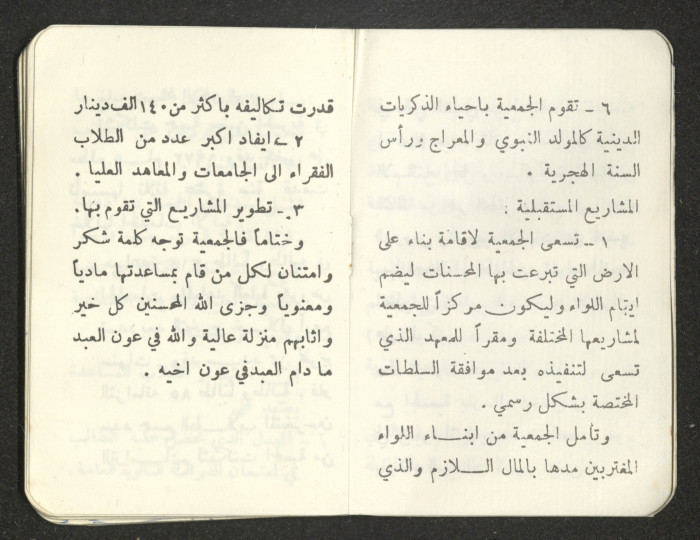 ٦ ـ تقوم الجمعية باحياء الذكريات
الدينية كالمولد النبوي والمعراج ورأس
السنة الهجرية .
المشاريع المستقبلية :
١ ـ تسعى الجمعية لاقامة بناء على
الارض التي تبرعت بها المحسنات ليضم
ايتام اللواء وليكون مركزاً للجمعية
لمشاريعها المختلفة ومقراً للمعهد الذي
تسعى لتنفيذه بعد موافقة السلطات
المختصة بشكل رسمي .
وتأمل الجمعية من ابنـاء اللواء
المغتربين مدها بالمال الـلازم والذي
قدرت تكاليفه باكثر من ١٤٠ الف دينار
٢ ـ ايفاد اكبر عدد من الطلاب
الفقراء الى الجامعات والمعاهد العليا .
٣ ـ تطوير المشاريع التي تقوم بها.
وختاماً فالجمعية توجه كلمة شكر
وامتنان لكل من قام بمساعدتها مادياً
ومعنوياً وجزى الله المحسنين كل خير
واثابهم منزلة عالية والله في عون العبد
ما دام العبد في عون اخيه .